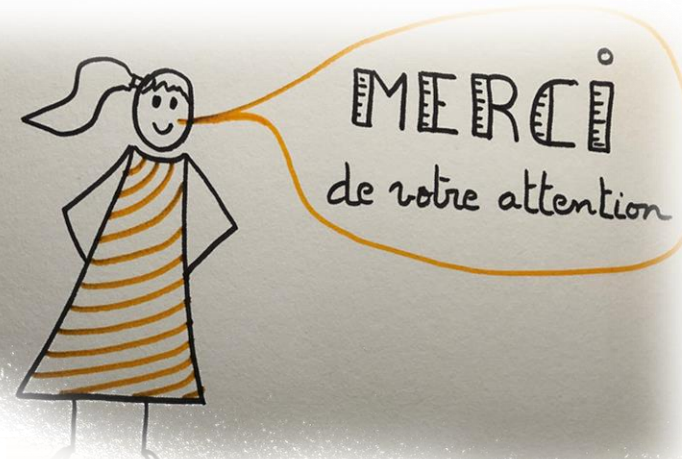 MERCi
de votre attention